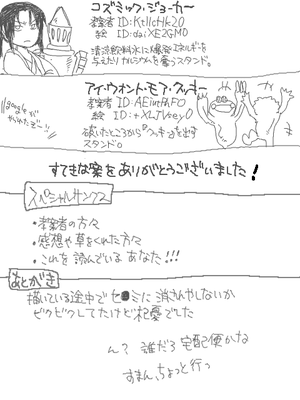 コズミック・ジョーカー
考案者 ID:KtIIcHk20
絵 ID:dai XE2GM0
清涼飲料水に爆発エネルギーを
与えたりカルシウムを奪うスタンド。
アイ・ウォント・モア・クッキー
考案者 ID:AEinPAF0
絵 ID:+XLTVsey0
破いたところから クッキーを出す
スタンド。
googleが
やられたぞ~!!
すてきな案をありがとうございました!
スペシャルサンクス
・考案者の方々
・感想や草をくれた方々
・これを読んでいる あなた!!!
あとがき
描いている途中でセ●ミに消されやしないか
ビクビクしてたけど杞憂でした
ん? 誰だろ宅配便かな
すまん、ちょっと行っ